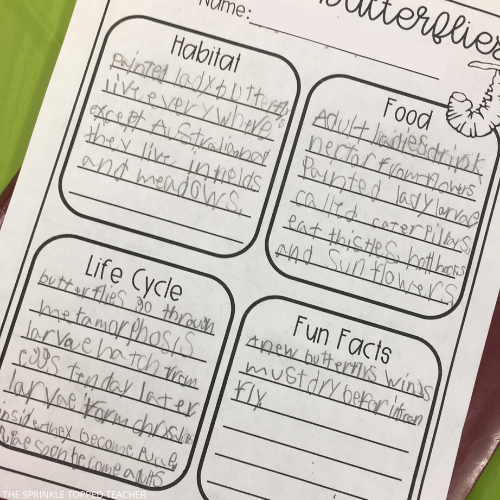 Name:
butterflies
Habitat
painted lady butterflies
live everywhere
except Australia and
they live in fields
and meadows.
Food
Adult ladies drink
nectar from flowers
Painted lady larvae
called caterpillars
eat thistles hollhocks
and sunflowers
Life Cycle
butterflies go through
metamorphosis
larvae hatch from
eggs ten day later
larvae form chrysalis
inside they become Pupae
Pupae soon become adults
Fun Facts
A new butterflys wings
must dry before it can
fly
THE SPRINKLE TOPPED TEACHER